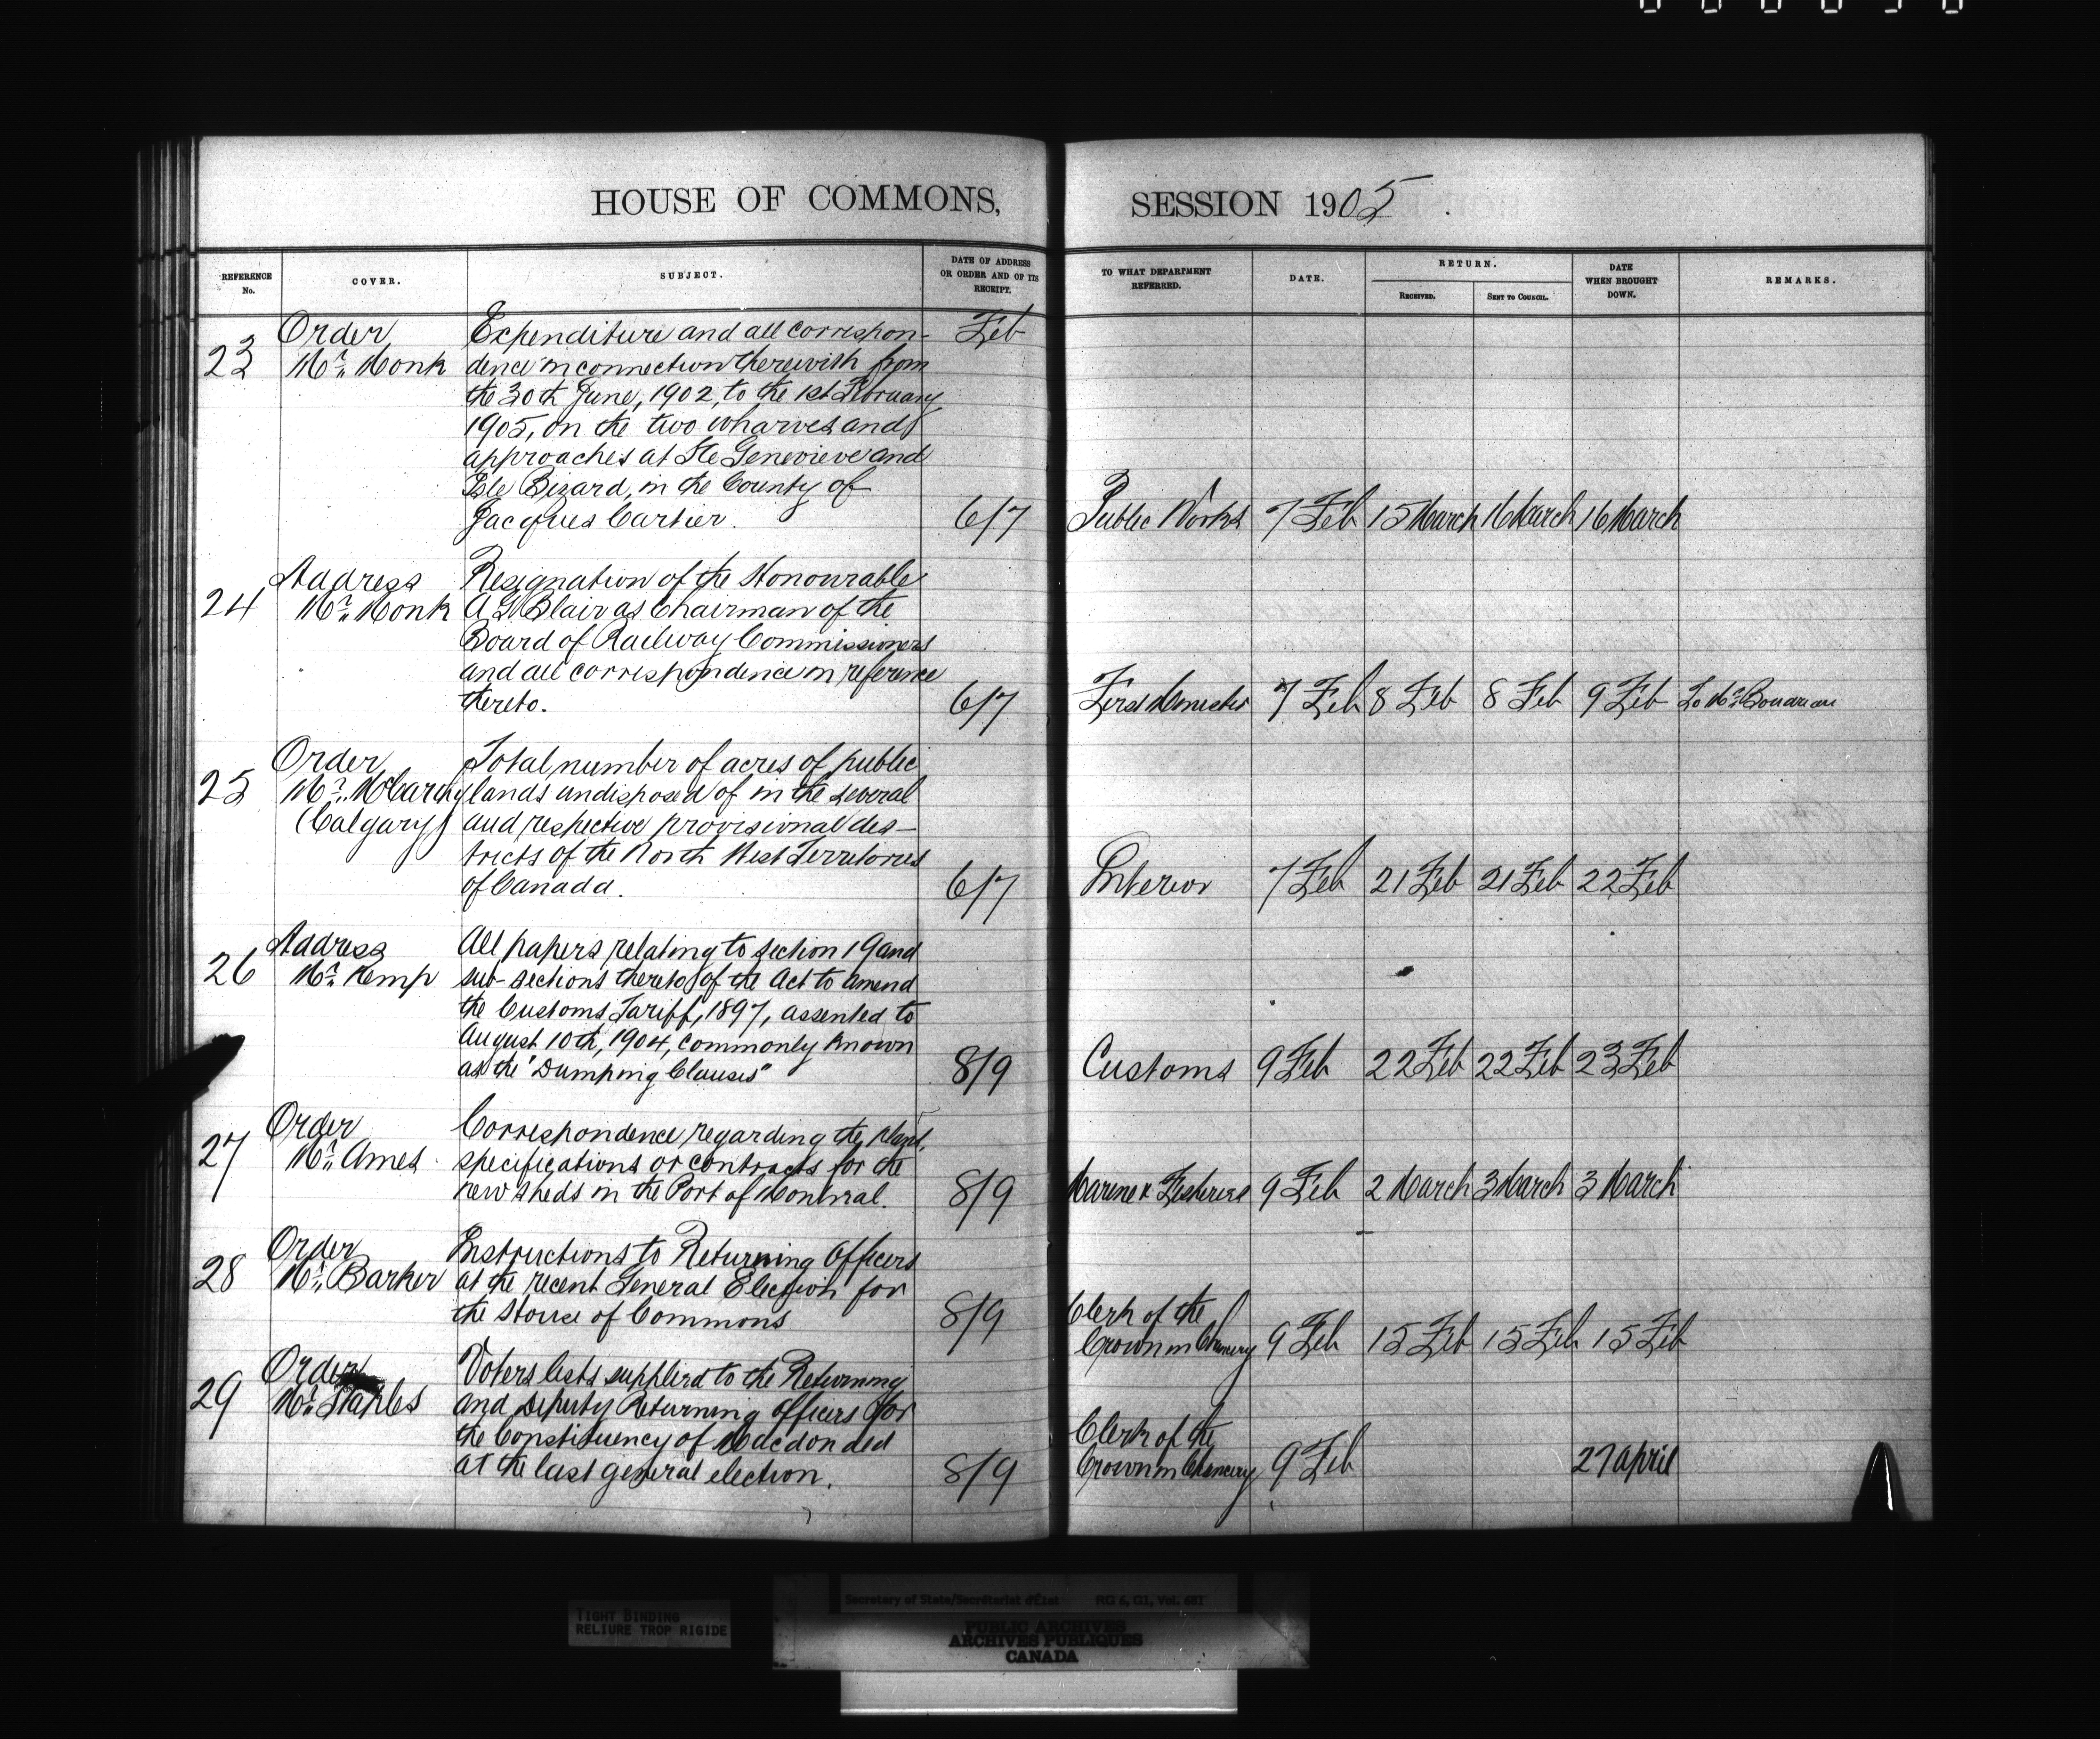 HOUSE OF COMMONS,
REFERENCE No.
COVER.
SUBJECT.
DATE OF ADDRESS OR ORDER AND OF ITS RECEIPT.
23
Order
Mr. Monk
Expenditure and all correspon-
dence in connection therewith from
the 30th June, 1902, to the 1st February
1905, on the two wharves and
approaches at Ste Genevieve and
Isle Bizard, in the County of
Jacques Cartier.
Feb
6/7
24
Address
Mr. Monk
Resignation of the Honourable
A G Blair as Chairman of the
Board of Railway Commissioners
and all correspondence in reference
thereto.
6/7
25
Order
Mr. McCarthy
(Calgary)
Total number of acres of public
lands undisposed of in the several
and respective provisional dis-
tricts of the North West Territories
of Canada.
6/7
26
Address
Mr. Kemp
All papers relating to section 19 and
sub-sections thereto of the Act to amend
the Customs Tariff, 1897, assented to
August 10th, 1904, commonly known
as the "Dumping Clauses"
8/9
27
Order
Mr. Ames
Correspondence regarding the plans,
specifications or contracts for the
new sheds in the Port of Montreal.
8/9
28
Order
Mr. Barker
Instructions to Returning Officers
at the recent General Election for
the House of Commons
8/9
29
Order
Mr. Staples
Voters lists supplied to the Returning
and Deputy Returning officers for
the Constituency of Macdonald
at the last general election.
8/9
SESSION 1905.
TO WHAT DEPARTMENT REFERRED.
DATE.
RETURN.
RECEIVED.
SENT TO COUNCIL.
DATE WHEN BROUGHT DOWN.
REMARKS.
Public Works 7 Feb 15 March 16 March 16 March
First Minister 7 Feb 8 Feb 8 Feb 9 Feb To Mr
Interior 7 Feb 21 Feb 21 Feb 22 Feb
Customs 9 Feb 22 Feb 22 Feb 23 Feb
Marine & Fisheries 9 Feb 2 March 3 March 3 March
Clerk of the
Crown in Chancery 9 Feb 15 Feb 15 Feb 15 Feb
Clerk of the
Crown in Chancery 9 Feb 27 April
TIGHT BINDING
RELIURE TROP RIGIDE
Secretary of State/Secrétariat d'État RG 6, G1, Vol. 681
PUBLIC ARCHIVES
ARCHIVES PUBLIQUES
CANADA